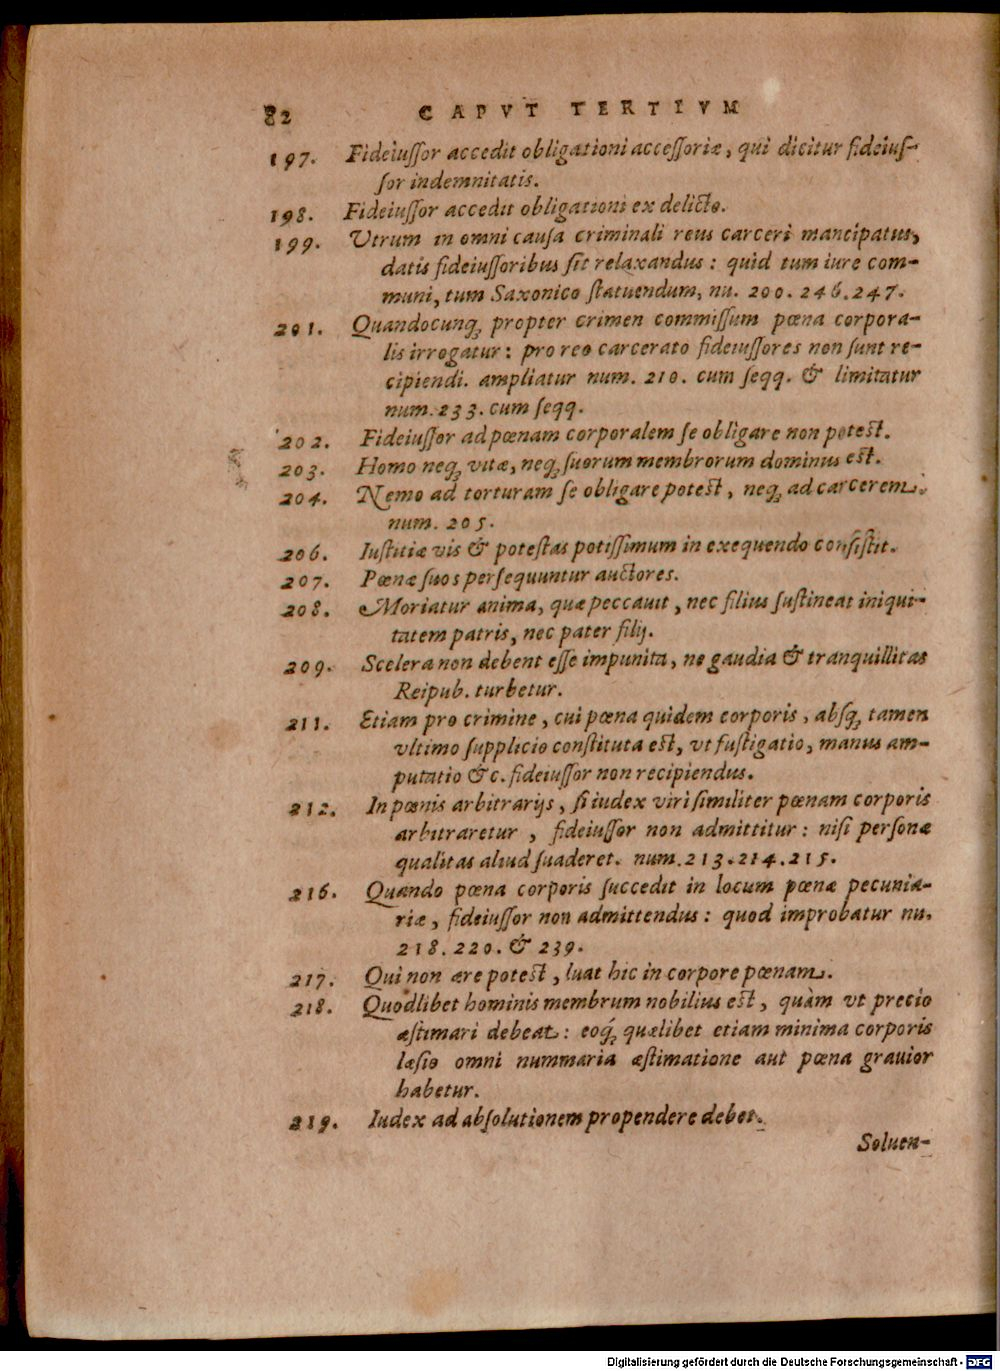 82 CAPVT TERTIVM
197. Fideiuſſor accedit obligationi acceſſoriæ, qui dicitur fideiuſ-
ſor indemnitatis.
198. Fideiuſſor accedit obligationi ex delicto.
199. Vtrum in omni cauſa criminali reus carceri mancipatus,
datis fideiuſſoribus ſit relaxandus: quid tum iure com-
muni, tum Saxonico ſtatuendum, nu. 200. 246. 247.
201. Quandocunq; propter crimen commiſſum pœna corpora-
lis irrogatur: pro reo carcerato fideiuſſores non ſunt re-
cipiendi. ampliatur num. 210. cum ſeqq. & limitatur
num. 233. cum ſeqq.
202. Fideiuſſor ad pœnam corporalem ſe obligare non poteſt.
203. Homo neq; vitæ, neq; ſuorum membrorum dominus eſt.
204. Nemo ad torturam ſe obligare poteſt, neq; ad carcerem.
num. 205.
206. Iuſtitiæ vis & poteſtas potiſſimum in exequendo conſiſtit.
207. Pœnæ ſuos perſequuntur auctores.
208. Moriatur anima, quæ peccauit, nec filius ſuſtineat iniqui-
tatem patris, nec pater filij.
209. Scelera non debent eſſe impunita, ne gaudia & tranquillitas
Reipub. turbetur.
211. Etiam pro crimine, cui pœna quidem corporis, absq; tamen
vltimo ſupplicio conſtituta eſt, vt fuſtigatio, manus am-
putatio &c. fideiuſſor non recipiendus.
212. In pœnis arbitrarijs, ſi iudex viriſimiliter pœnam corporis
arbitraretur, fideiuſſor non admittitur: niſi perſonæ
qualitas aliud ſuaderet. num. 213. 214. 215.
216. Quando pœna corporis ſuccedit in locum pœnæ pecunia-
riæ, fideiuſſor non admittendus: quod improbatur nu.
218. 220. & 239.
217. Qui non ære poteſt, luat hic in corpore pœnam.
218. Quodlibet hominis membrum nobilius eſt, quàm vt precio
æſtimari debeat: eoq́; quælibet etiam minima corporis
læſio omni nummaria æſtimatione aut pœna grauior
habetur.
219. Iudex ad abſolutionem propendere debet.
Soluen-
Digitalisierung gefördert durch die Deutsche Forschungsgemeinschaft - DFG